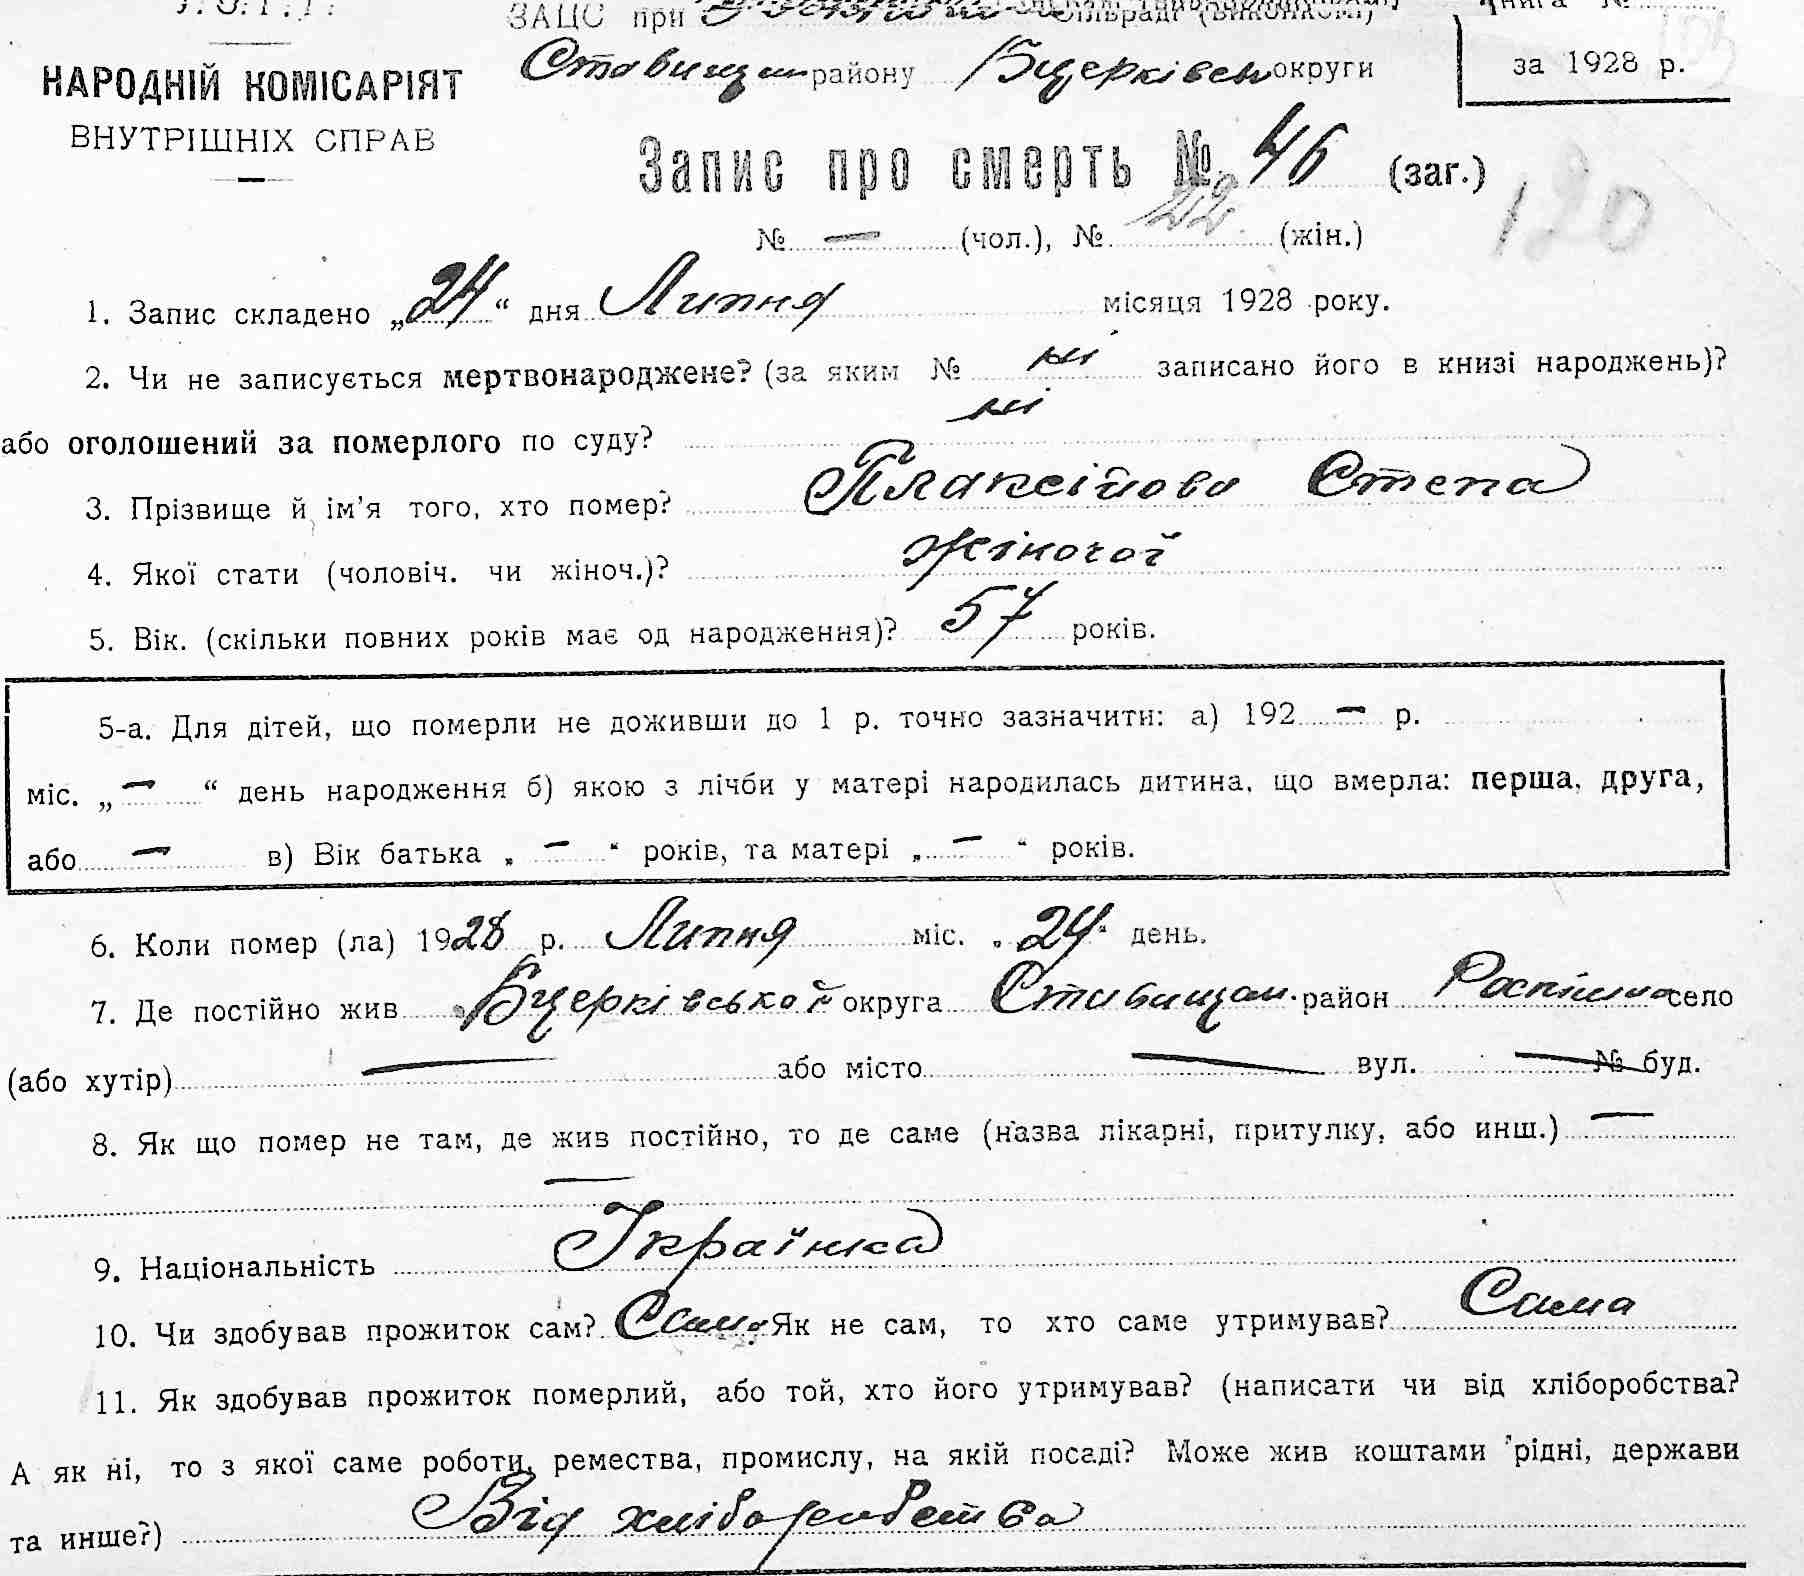 ЗАЦС при
Ставищан району Бцерківськ округи за 1928 р.
НАРОДНІЙ КОМІСАРІЯТ
ВНУТРІШНІХ СПРАВ
Запис про смерть № 46 (заг.)
120
№ — (чол.), № 22 (жін.)
1. Запис складено „24“ дня Липня місяця 1928 року.
2. Чи не записується мертвонароджене? (за яким № ні записано його в книзі народжень)?
або оголошений за померлого по суду? ні
3. Прізвище й ім'я того, хто помер? Плаксійова Степа
4. Якої стати (чоловіч. чи жіноч.)? жіночої
5. Вік. (скільки повних років має од народження)? 57 років.
5-а. Для дітей, що померли не доживши до 1 р. точно зазначити: а) 192 — р.
міс. „—“ день народження б) якою з лічби у матері народилась дитина, що вмерла: перша, друга,
або — в) Вік батька „—“ років, та матері „—“ років.
6. Коли помер (ла) 1928 р. Липня міс. „24“ день.
7. Де постійно жив Бцерківської округа Ставищан. район село
(або хутір) — або місто — вул. — № буд.
8. Як що помер не там, де жив постійно, то де саме (назва лікарні, притулку, або инш.) —
—
9. Національність Українка
10. Чи здобував прожиток сам? Сама Як не сам, то хто саме утримував? Сама
11. Як здобував прожиток померлий, або той, хто його утримував? (написати чи від хліборобства?
А як ні, то з якої саме роботи, ремества, промислу, на якій посаді? Може жив коштами рідні, держави
та инше?) Від хліборобства